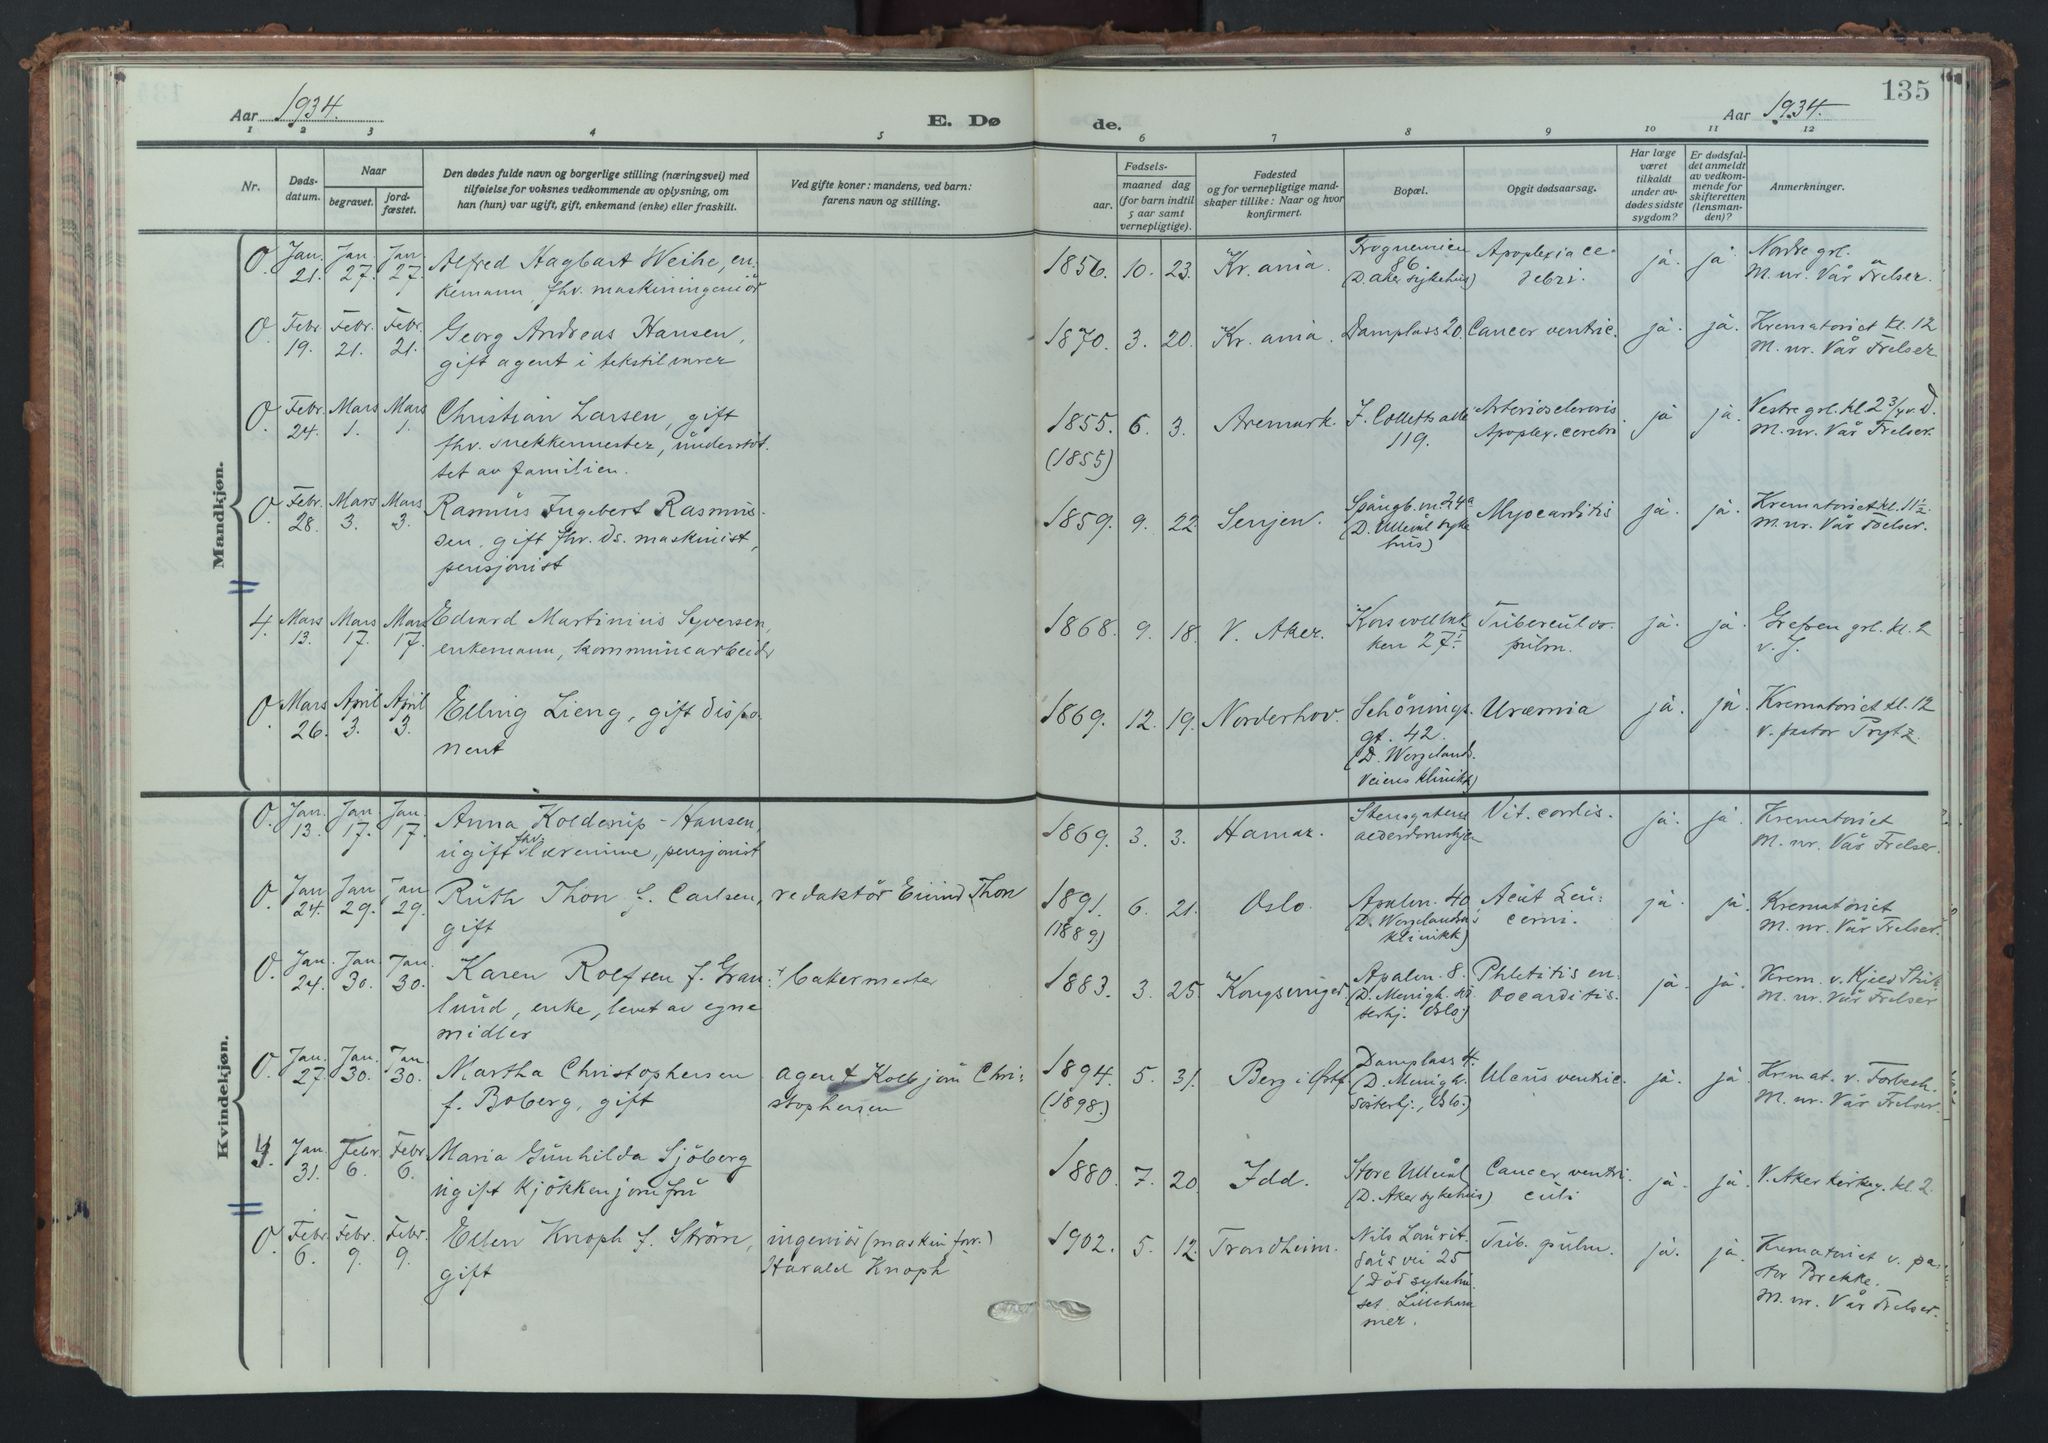 135
Aar 1934.
E. Dø
de.
Aar 1934.
1 2 3 4 5 6 7 8 9 10 11 12
Nr.
Døds-
datum.
Naar
begravet.
jord-
fæstet.
Den dødes fulde navn og borgerlige stilling (næringsvei) med
tilføielse for voksnes vedkommende av oplysning, om
han (hun) var ugift, gift, enkemand (enke) eller fraskilt.
Ved gifte koner: mandens, ved barn:
farens navn og stilling.
Fødsels-
aar.
maaned dag
(for barn indtil
5 aar samt
vernepligtige).
Fødested
og for vernepligtige mand-
skaper tillike: Naar og hvor
konfirmert.
Bopæl.
Opgit dødsaarsag.
Har læge
været
tilkaldt
under av-
dødes sidste
sygdom?
Er dødsfal-
det anmeldt
av vedkom-
mende for
skifteretten
(lensman-
den)?
Anmerkninger.
Mandkjøn.
0. Jan. 21. Jan. 27. Jan. 27. Alfred Hagbart Weihe, en-
kemann, fhv. maskiningeniör
1856. 10. 23. Kr.ania. Frognerveien
86
(D. Aker sykehus)
Apoplexia ce-
rebri.
ja. ja. Nordre grl.
M. nr. Vår Frelser.
0. Febr. 19. Febr. 21. Febr. 21. Georg Andreas Hansen,
gift agent i tekstilvarer
1870. 3. 20. Kr.ania. Damplass 20. Cancer ventric. ja. ja. Krematoriet kl. 12
M. nr. Vår Frelser
0. Febr. 24. Mars 1. Mars 1. Christian Larsen, gift
fhv. snekkermester, understöt-
tet av familien.
1855. 6. 3. Aremark. J. Colletts alle
(1855)
119.
Arteriosclerosis
Apoplex. cerebri
ja ja. Vestre grl. kl. 2 3/4 v. D.
M. nr. Vår Frelser.
0. Febr. 28. Mars 3. Mars 3. Rasmus Ingebert Rasmus-
sen, gift fhv. ds. maskinist,
pensjonist
1859. 9. 22. Senjen. Spångb.m. 24a
(D. Ullevål syke
hus)
Myocarditis ja. ja. Krematoriet kl. 11½
M. nr. Vår Frelser.
4. Mars 13. Mars 17. Mars 17. Edvard Martinius Syversen,
enkemann, kommunearbeider
1868. 9. 18. V. Aker. Korsvollbak
ken 27.I
Tuberculos.
pulm.
ja. ja. Grefsen grl. kl. 2
v. J.
0. Mars 26. April 3. April 3. Elling Lieng, gift dispo-
nent
1869. 12. 19. Norderhov. Schönings
gt. 42.
(D. Wergelands
veiens klinikk)
Uræmia ja. ja. Krematoriet kl. 12
v. pastor Prytz.
Kvindekjøn.
0. Jan. 13. Jan. 17. Jan. 17. Anna Kolderup-Hansen,
ugift fhv. lærerinne, pensjonist
1869. 3. 3. Hamar. Stensgatens
alderdomshjem
Vit. cordis. ja. ja. Krematoriet
M. nr. Vår Frelser.
0. Jan. 24. Jan. 29. Jan. 29. Ruth Thon f. Carlsen,
gift
redaktör Eivind Thon
1891. 6. 21. Oslo. Apalv. 40
(1889)
(D. Wergelandsv's
klinikk)
Acut Leu-
cemi.
ja. ja. Krematoriet
M. nr. Vår Frelser.
0. Jan. 24. Jan. 30. Jan. 30. Karen Rolfsen f. Gran-
lund, enke, levet av egne
midler
bakermester
1883. 3. 25. Kongsvinger Apalv. 8.
(D. Menigh. sö-
sterhj. Oslo)
Phlebitis en-
docarditis.
ja. ja. Krem. v. Kjeld Stub
M. nr. Vår Frelser
0. Jan. 27. Jan. 30. Jan. 30. Martha Christophersen
f. Boberg, gift
agent Kolbjörn Chri-
stophersen
1894. 5. 31. Berg i Østf. Damplass 4.
(1898.)
(D. Menigh.
sösterhj., Oslo.)
Ulcus ventric. ja. ja. Kremat. v. Forbech.
M. nr. Vår Frelser.
3. Jan. 31. Febr. 6. Febr. 6. Maria Gunhilda Sjöberg
ugift kjökkenjomfru
1880. 7. 20. Idd. Store Ullevål
(D. Aker sykehus)
Cancer ventri-
culi
ja. ja. V. Aker kirkeg. kl. 2.
0. Febr. 6. Febr. 9. Febr. 9. Ellen Knoph f. Ström,
gift
ingeniör (maskinforr.)
Harald Knoph
1902. 5. 12. Trondheim. Nils Laurit-
såns vei 25
(död sykehu
set Lilleham
mer.
Tub. pulm. ja. ja. Krematoriet v. pa-
stor Brekke.
M. nr. Vår Frelser.